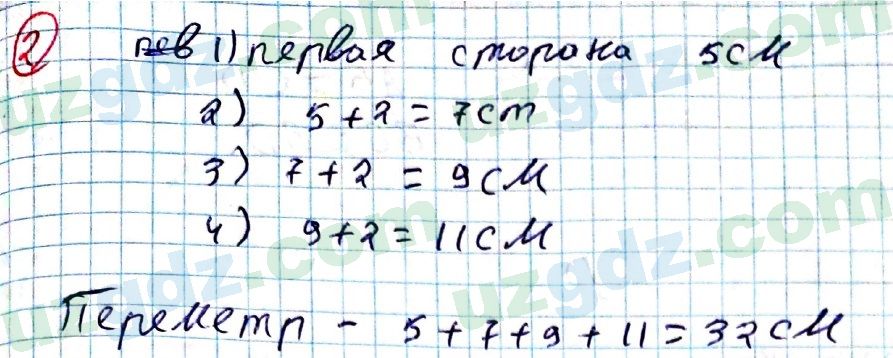 2 1) первая сторона 5см
2) 5+2=7cm
3) 7+2=9см
4) 9+2=11см
Переметр - 5+7+9+11=32см
uzgdz.com